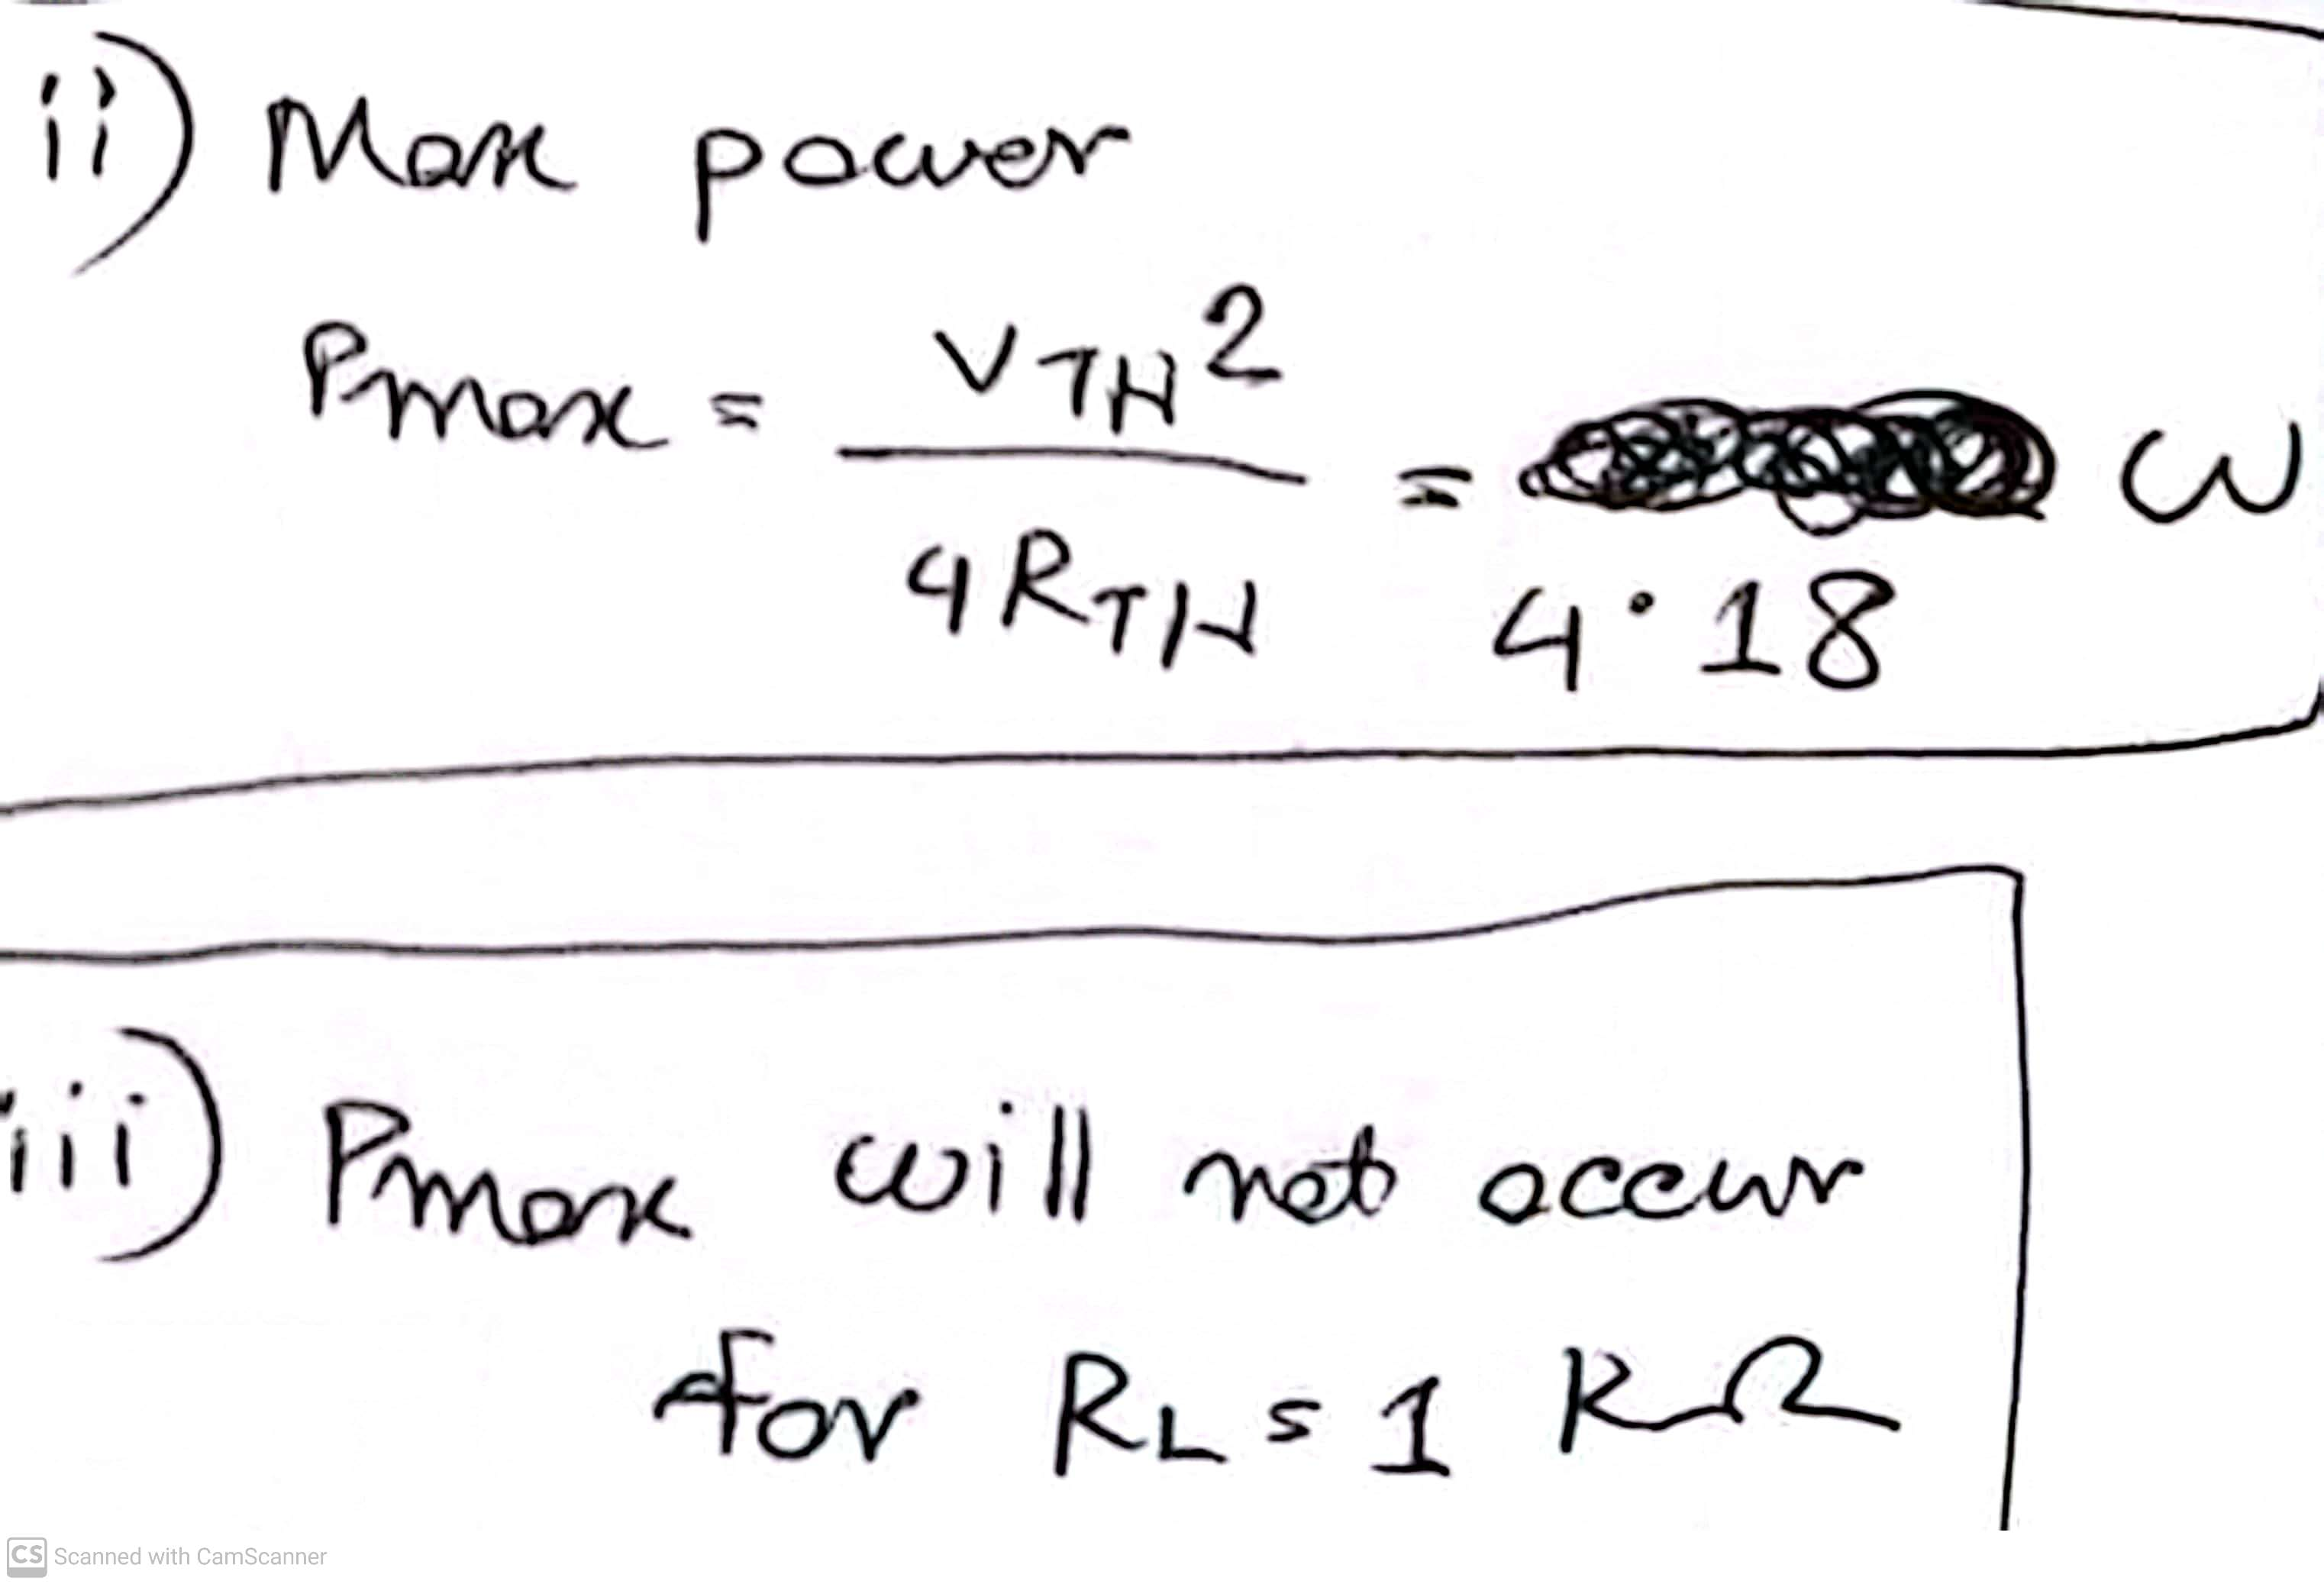 ii) Max power
Pmax = V_TH^2 / 4R_TH = W
4.18
iii) Pmax will not occur
for R_L = 1 KΩ
CS Scanned with CamScanner